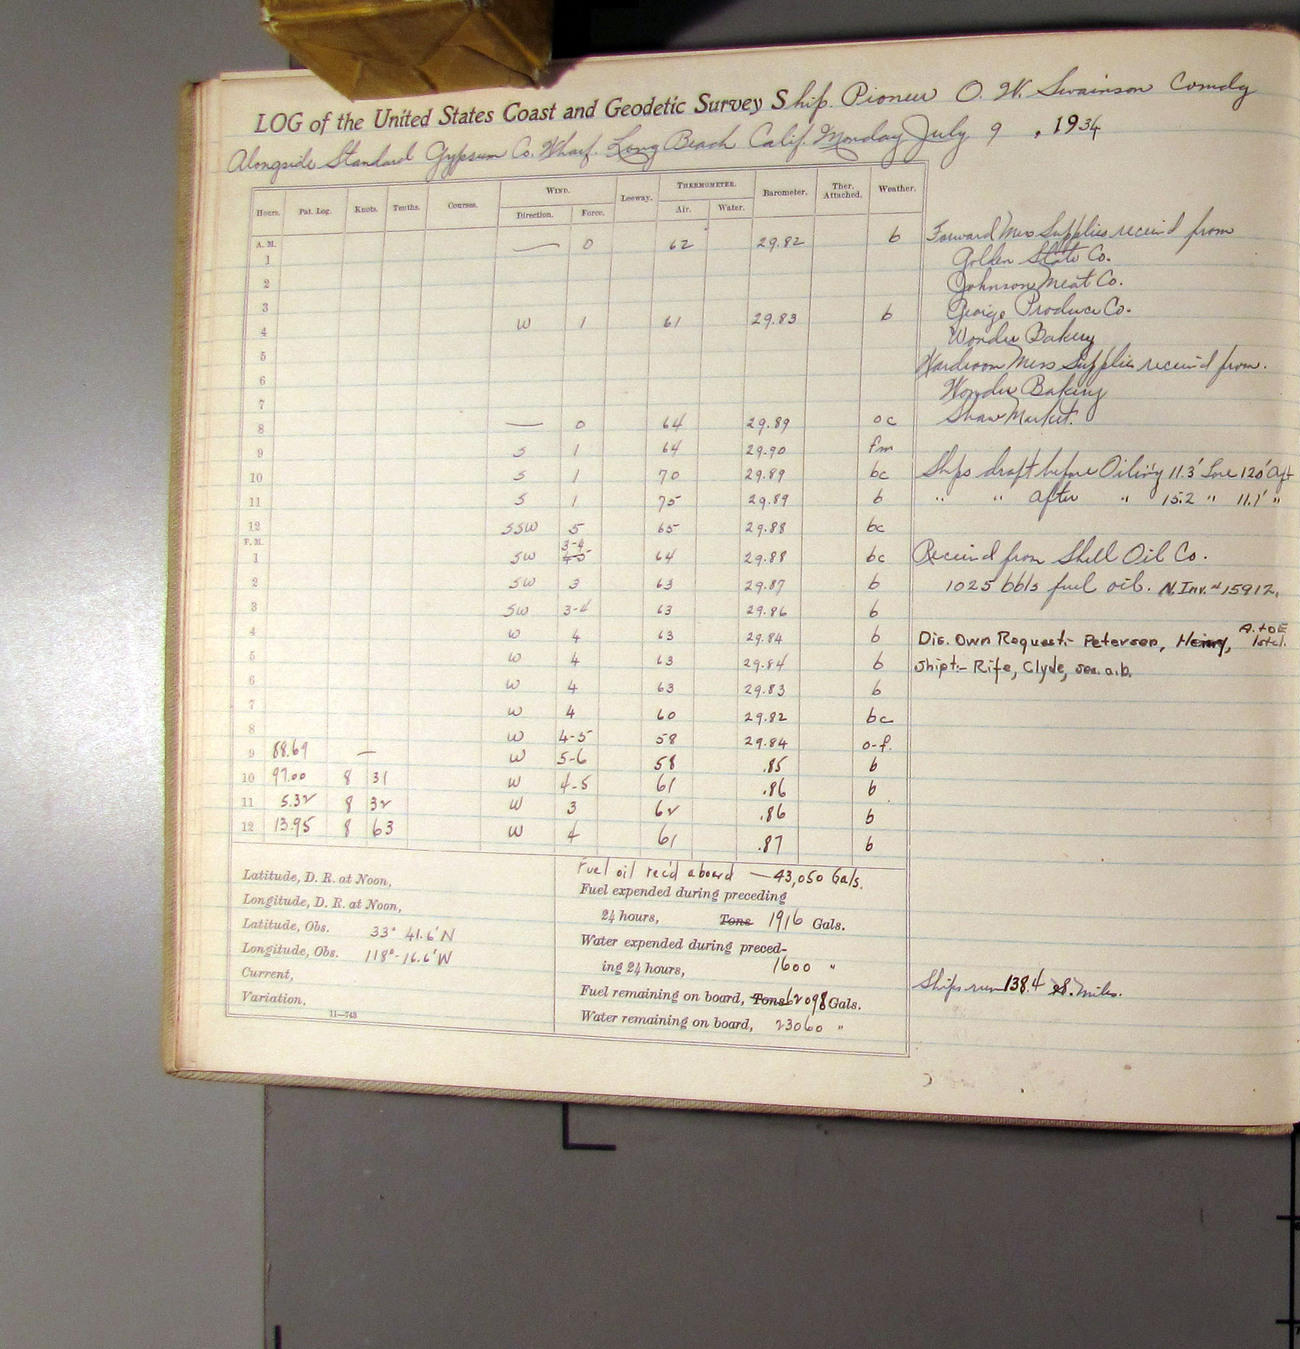 LOG of the United States Coast and Geodetic Survey Ship. Pioneer O. W. Swainson Comdg
Alongside Standard Gypsum Co. Wharf. Long Beach Calif. Monday July 9, 1934
Hours. Pat. Log. Knots. Tenths. Courses. WIND. Direction. Force. Leeway. THERMOMETER. Air. Water. Barometer. Ther. Attached. Weather.
A. M. — 0 62 29.82 b
1
2
3
W 1 61 29.83 b
4
5
6
7
8 — 0 64 29.89 oc
9 S 1 64 29.90 fm
10 S 1 70 29.89 bc
11 S 1 75 29.89 b
12 SSW 5 65 29.88 bc
P. M.
1 SW 3-4 64 29.88 bc
2 SW 3 63 29.87 b
3 SW 3-4 63 29.86 b
4 W 4 63 29.84 b
5 W 4 63 29.84 b
6 W 4 63 29.83 b
7 W 4 60 29.82 bc
8 W 4-5 58 29.84 o-f.
9 88.69 — W 5-6 58 .85 b
10 97.00 8 31 W 4-5 61 .86 b
11 5.32 8 32 W 3 62 .86 b
12 13.95 8 63 W 4 61 .87 b
Forward Mess Supplies received from
Golden State Co.
Johnson Meat Co.
George Produce Co.
Wonder Bakery
Wardroom Mess Supplies received from.
Wonder Bakery
Shaw Market.
Ships draft before Oiling 11.3' Fore 12.0' Aft
" " after " 15.2 " 11.1' "
Received from Shell Oil Co.
1025 bbls fuel oil. N. Inv. # 15912.
Dis. Own Request:- Petersen, Henry, A. to E 1st cl.
Shipt:- Rife, Clyde, sea. a.b.
Ships run 138.4 s. miles.
Latitude, D. R. at Noon,
Longitude, D. R. at Noon,
Latitude, Obs. 33° 41.6' N
Longitude, Obs. 118°-16.6' W
Current,
Variation,
11—743
Fuel oil rec'd aboard — 43,050 Gals.
Fuel expended during preceding
24 hours, Tons 1916 Gals.
Water expended during preced-
ing 24 hours, 1600 "
Fuel remaining on board, Tons 62098 Gals.
Water remaining on board, 23060 "